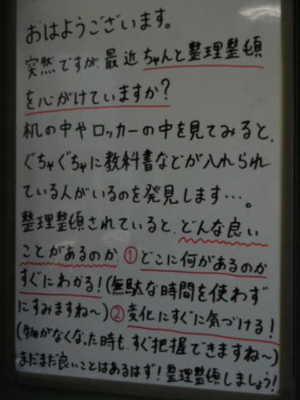 おはようございます。
突然ですが最近ちゃんと整理整頓
を心がけていますか？
机の中やロッカーの中を見てみると、
ぐちゃぐちゃに教科書などが入れられ
ている人がいるのを発見します…。
整理整頓されていると、どんな良い
ことがあるのか ①どこに何があるのか
すぐにわかる！(無駄な時間を使わず
にすみますね〜) ②変化にすぐに気づける！
(物がなくなった時も、すぐ把握できますね〜)
まだまだ良いことはあるはず！整理整頓しましょう！